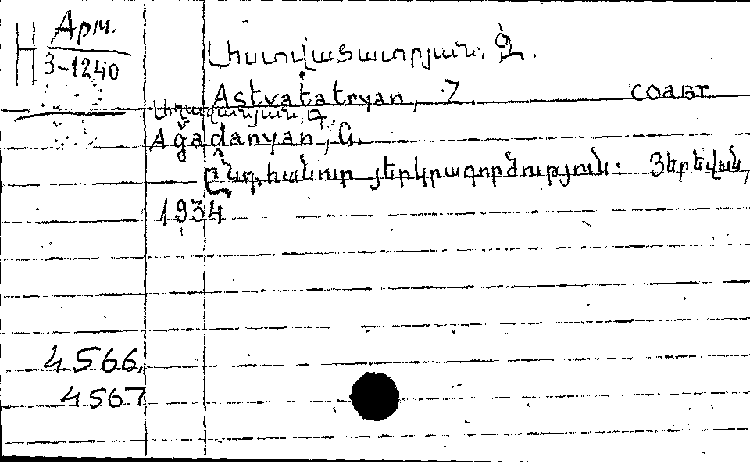 Н Арм.
3-1240
Աստվածատրյան, Զ.
Astvatatryan, Z. соавт.
Աղադանյան, Գ.
Ağadanyan, G.
Ընդհանուր յերկրագործություն. Յերեվան,
1934
4566,
4567